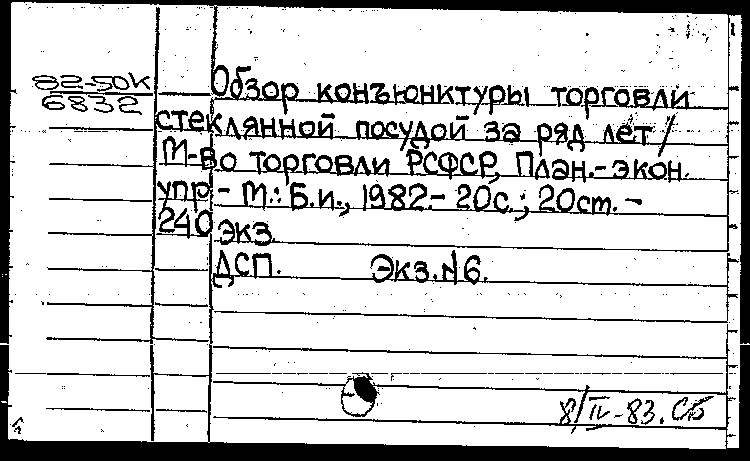 82-50К
6832
Обзор конъюнктуры торговли
стеклянной посудой за ряд лет /
М-во торговли РСФСР, План.-экон.
упр - М.: Б.и., 1982.- 20с.; 20ст. -
240 экз.
ДСП. Экз.№6.
8/IV-83. СБ